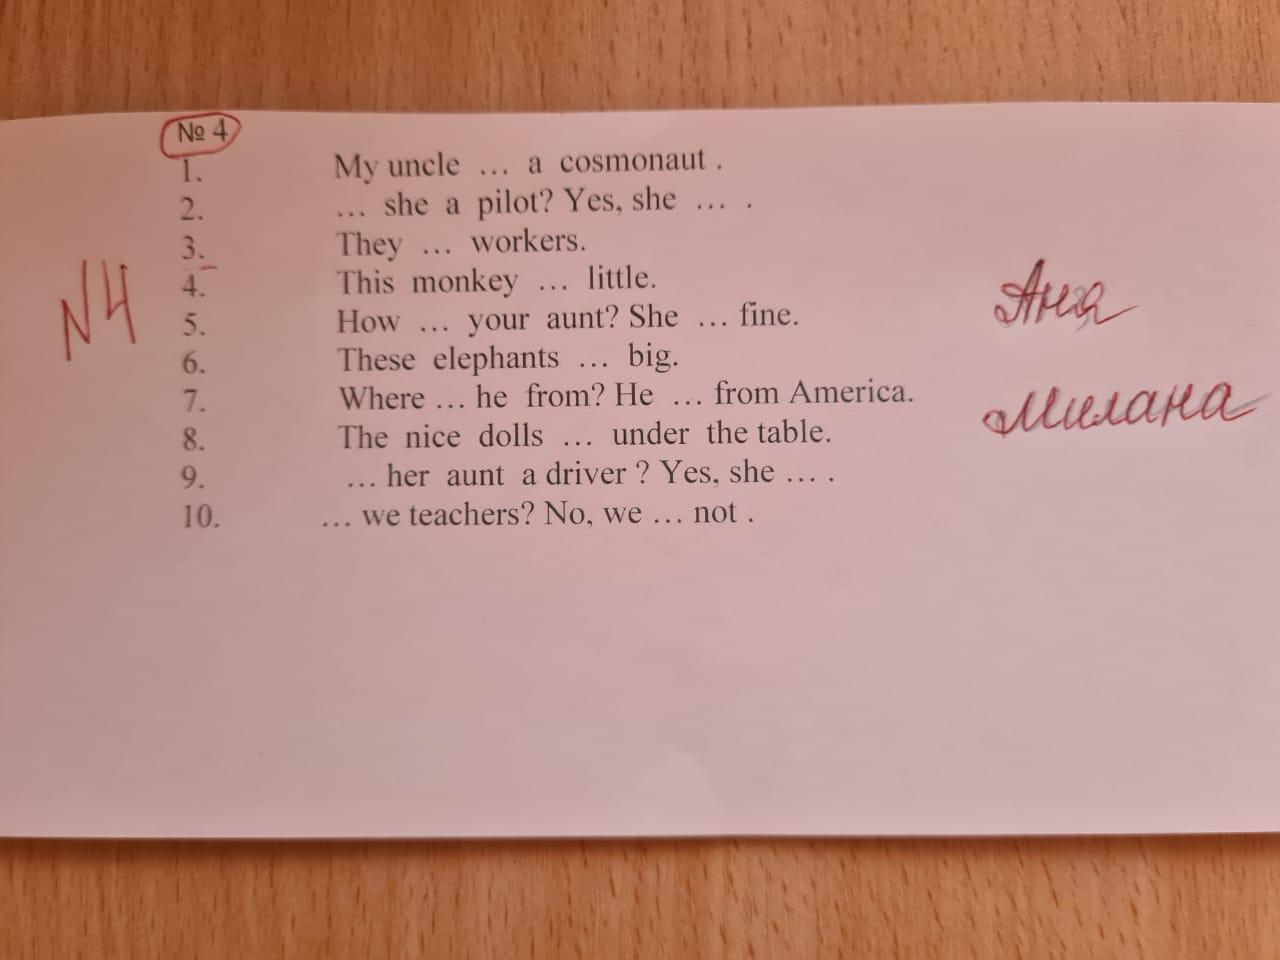 № 4
1. My uncle … a cosmonaut .
2. … she a pilot? Yes, she … .
3. They … workers.
4. This monkey … little.
5. How … your aunt? She … fine.
6. These elephants … big.
7. Where … he from? He … from America.
8. The nice dolls … under the table.
9. … her aunt a driver ? Yes, she … .
10. … we teachers? No, we … not .
N4
Аня
Милана